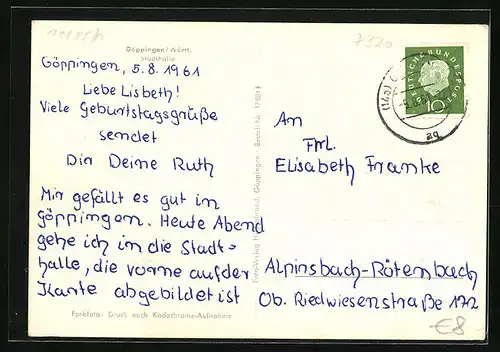 7320
Göppingen/Württ.
Stadthalle
Göppingen, 5.8.1961
Liebe Lisbeth!
Viele Geburtstagsgrüße
sendet
Dir Deine Ruth
Mir gefällt es gut in
Göppingen. Heute Abend
gehe ich in die Stadt-
halle, die vorne auf der
Karte abgebildet ist
Farbfoto- Druck nach Kodachrome-Aufnahme
Göppingen - Bestell-Nr.
DEUTSCHE BUNDESPOST
10
(14a)
ag
An
Frl.
Elisabeth Franke
Alpirsbach-Rötenbach
Ob. Riedwiesenstraße 172
€8-